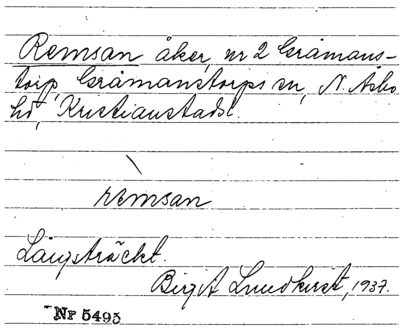 Remsan åker, nr 2 Gråmans-
torp, Gråmanstorps sn, N. Åsbo
hd, Kristianstads l.
remsan
Långsträckt.
Birgit Lundkvist, 1937.
Nr 5495